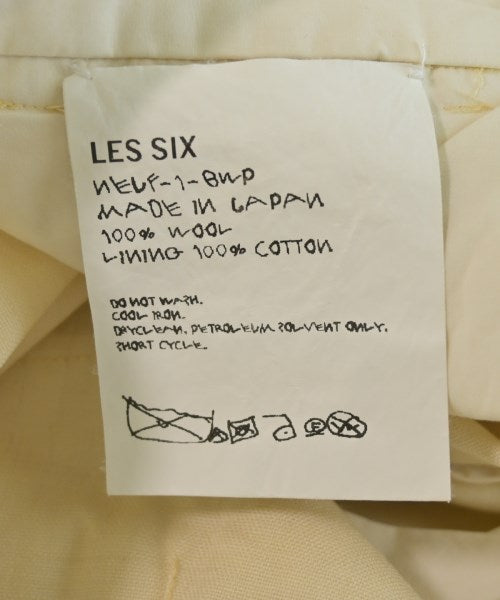 LES SIX
NEUF-1-BWP
MADE IN JAPAN
100% WOOL
LINING 100% COTTON
DO NOT WASH.
COOL IRON.
DRYCLEAN, PETROLEUM SOLVENT ONLY.
SHORT CYCLE.